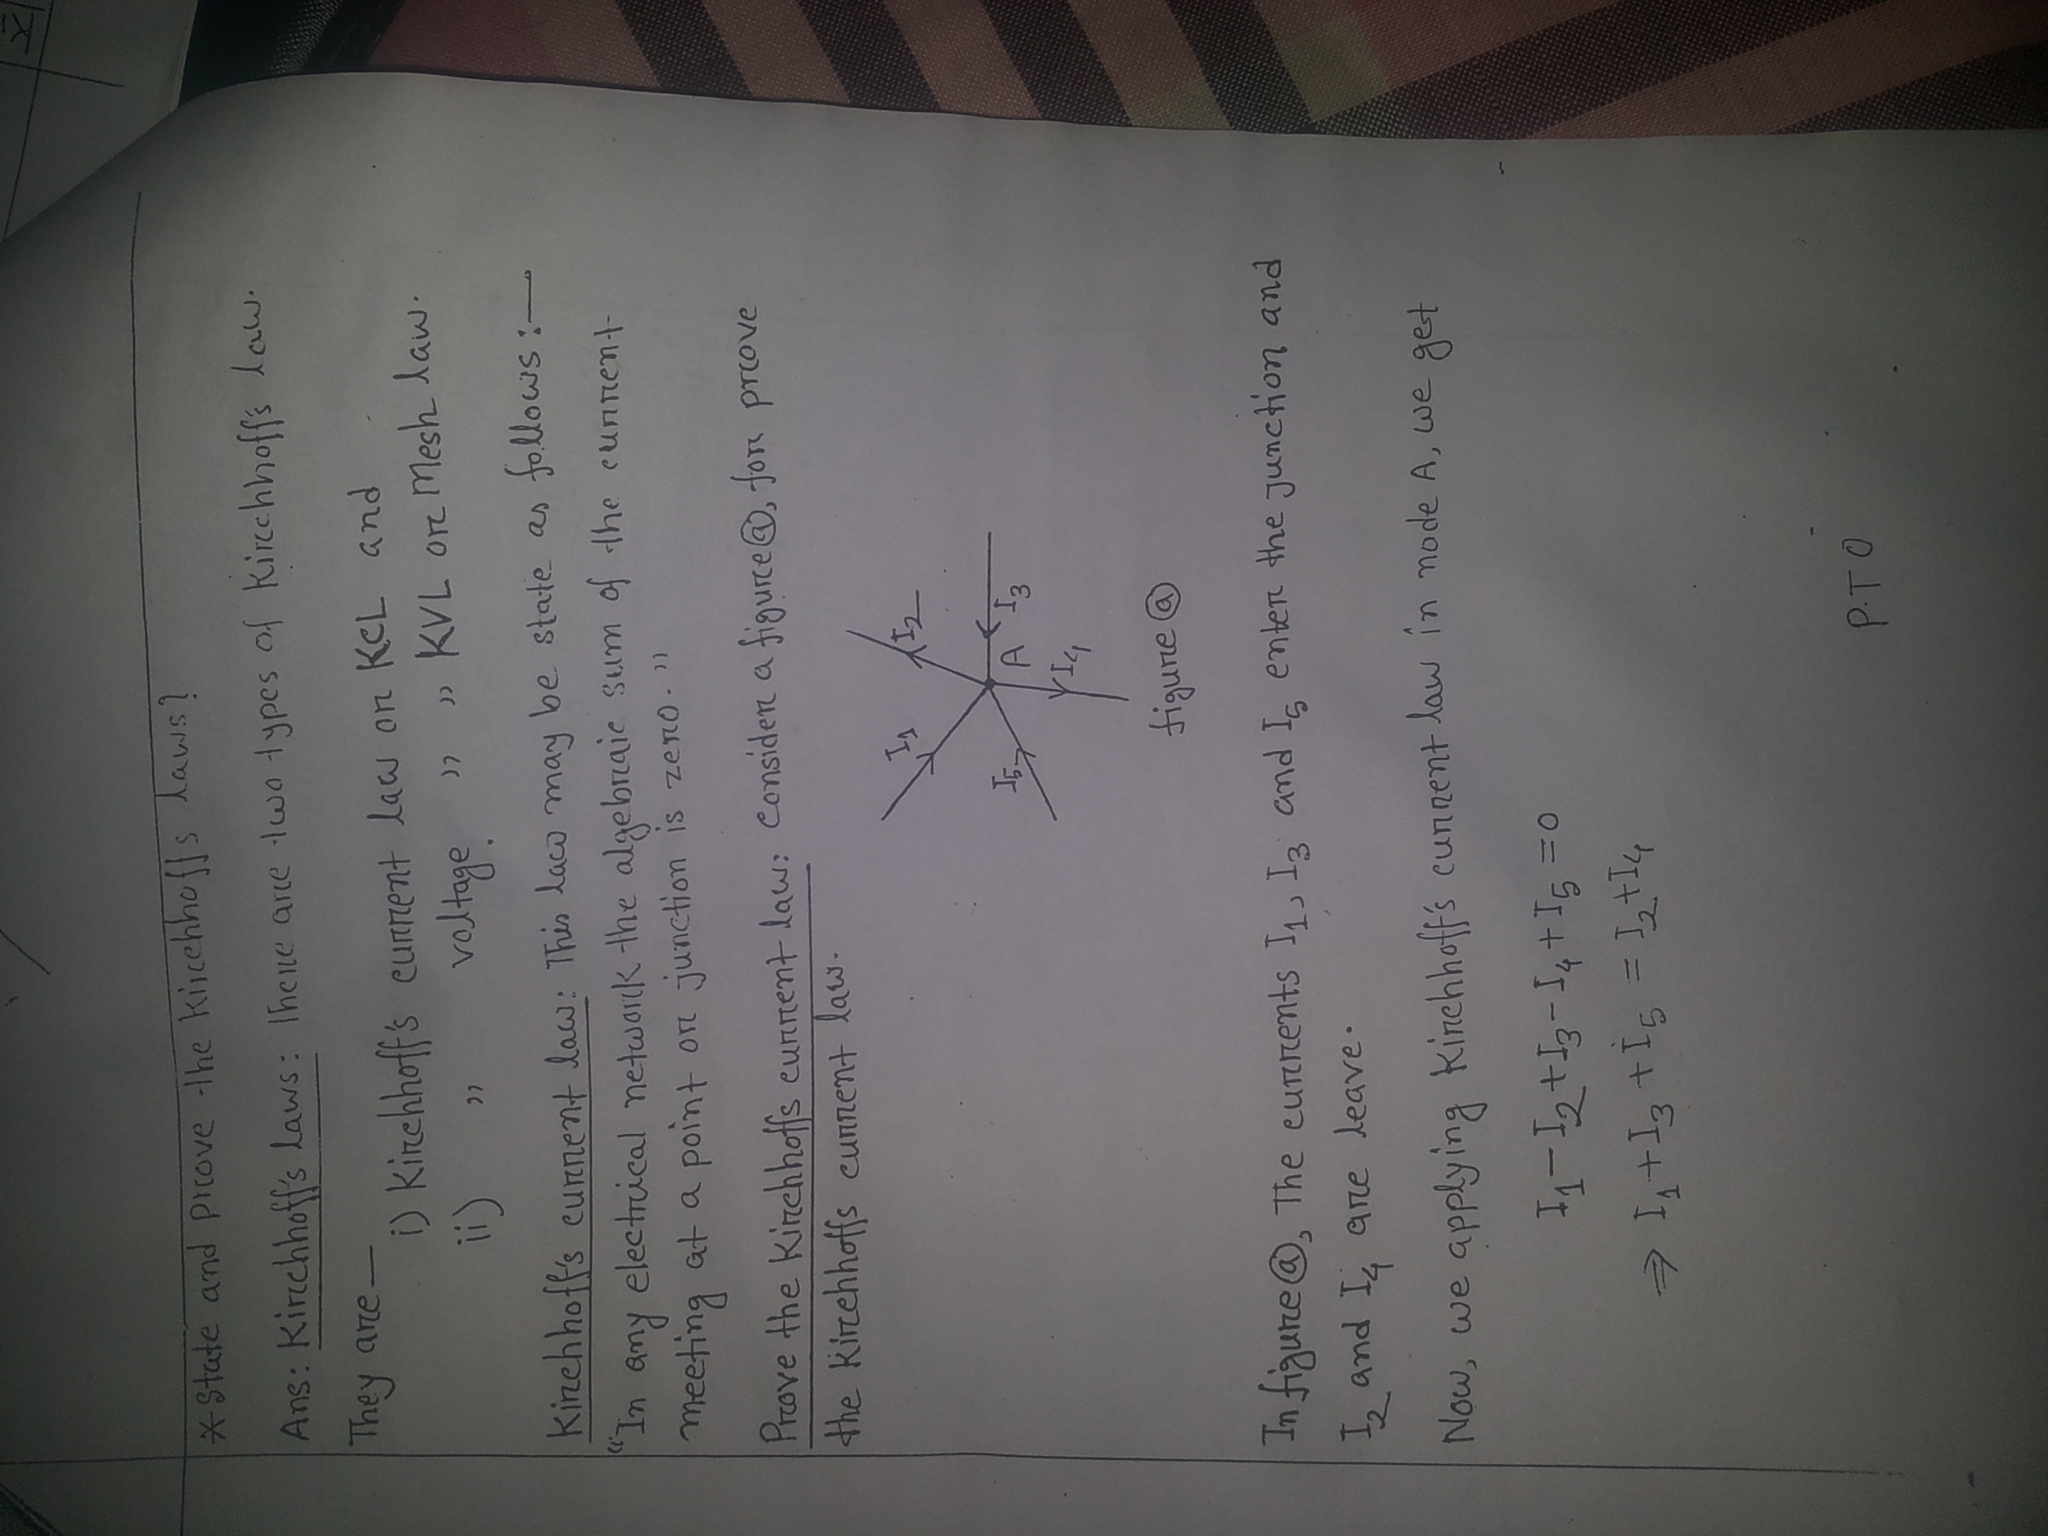 * State and prove the Kirchhoffs laws?
Ans: Kirchhoff's laws: There are two types of Kirchhoff's law.
They are —
i) Kirchhoff's current law or KCL and
ii) " voltage " " KVL or Mesh law.
Kirchhoff's current law: This law may be state as follows :—
"In any electrical network the algebraic sum of the current
meeting at a point or junction is zero."
Prove the Kirchhoffs current law: Consider a figure ⓐ, for prove
the Kirchhoffs current law.
I₁
I₂
I₅
A
I₃
I₄
figure ⓐ
In figure ⓐ, The currents I₁, I₃ and I₅ enter the junction and
I₂ and I₄ are leave.
Now, we applying Kirchhoff's current law in node A, we get
I₁ - I₂ + I₃ - I₄ + I₅ = 0
⇒ I₁ + I₃ + I₅ = I₂ + I₄
P.T O